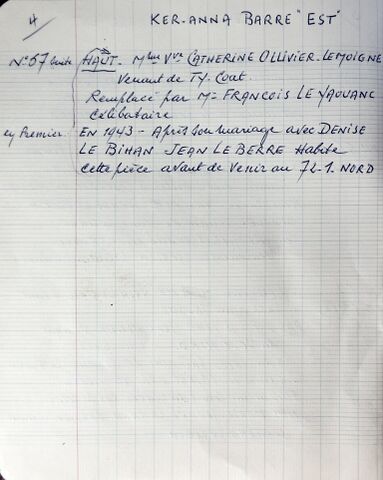 4
KER-ANNA BARRE "EST"
N° 57 suite HAUT - Mme Vve CATHERINE OLLIVIER-LEMOIGNE
Venant de TY-Coat
Remplacé par Mr FRANCOIS LE YAOUANC
célibataire
en Premier EN 1943 - Après son mariage avec DENISE
LE BIHAN JEAN LE BERRE Habite
cette pièce avant de venir au 72-1. NORD